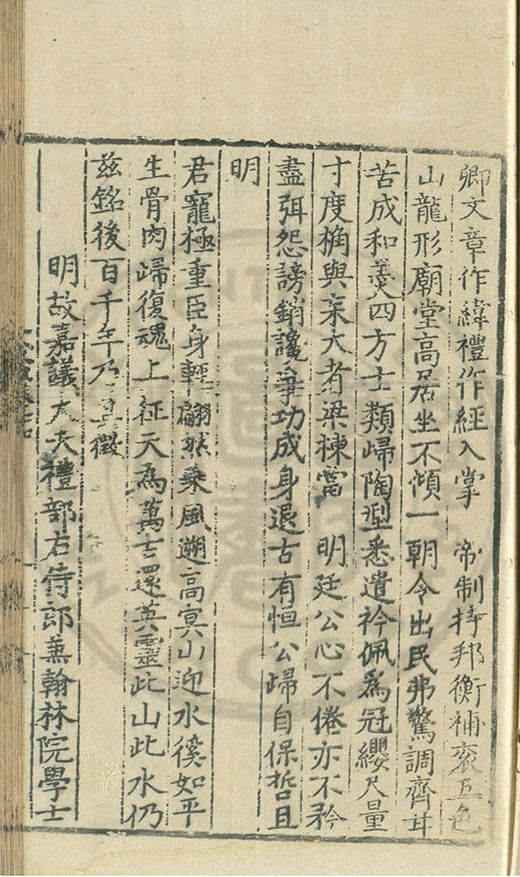 卿文章作緯禮作經入掌　帝制持邦衡補袞五色
山龍形廟堂高居坐不傾一朝令出民弗驚調齊甘
苦成和羹四方士類歸陶型悉遣衿佩為冠纓尺量
寸度桷與杗大者梁棟當　明廷公心不倦亦不矜
盡弭怨謗銷讒爭功成身退古有恒公歸自保哲且
明
君寵極重臣身輕翩然乘風遡高冥山迎水徯如平
生骨肉歸復魂上征天為萬古還英靈此山此水仍
玆銘後百千年乃其徵
明故嘉議大夫禮部右侍郎兼翰林院學士